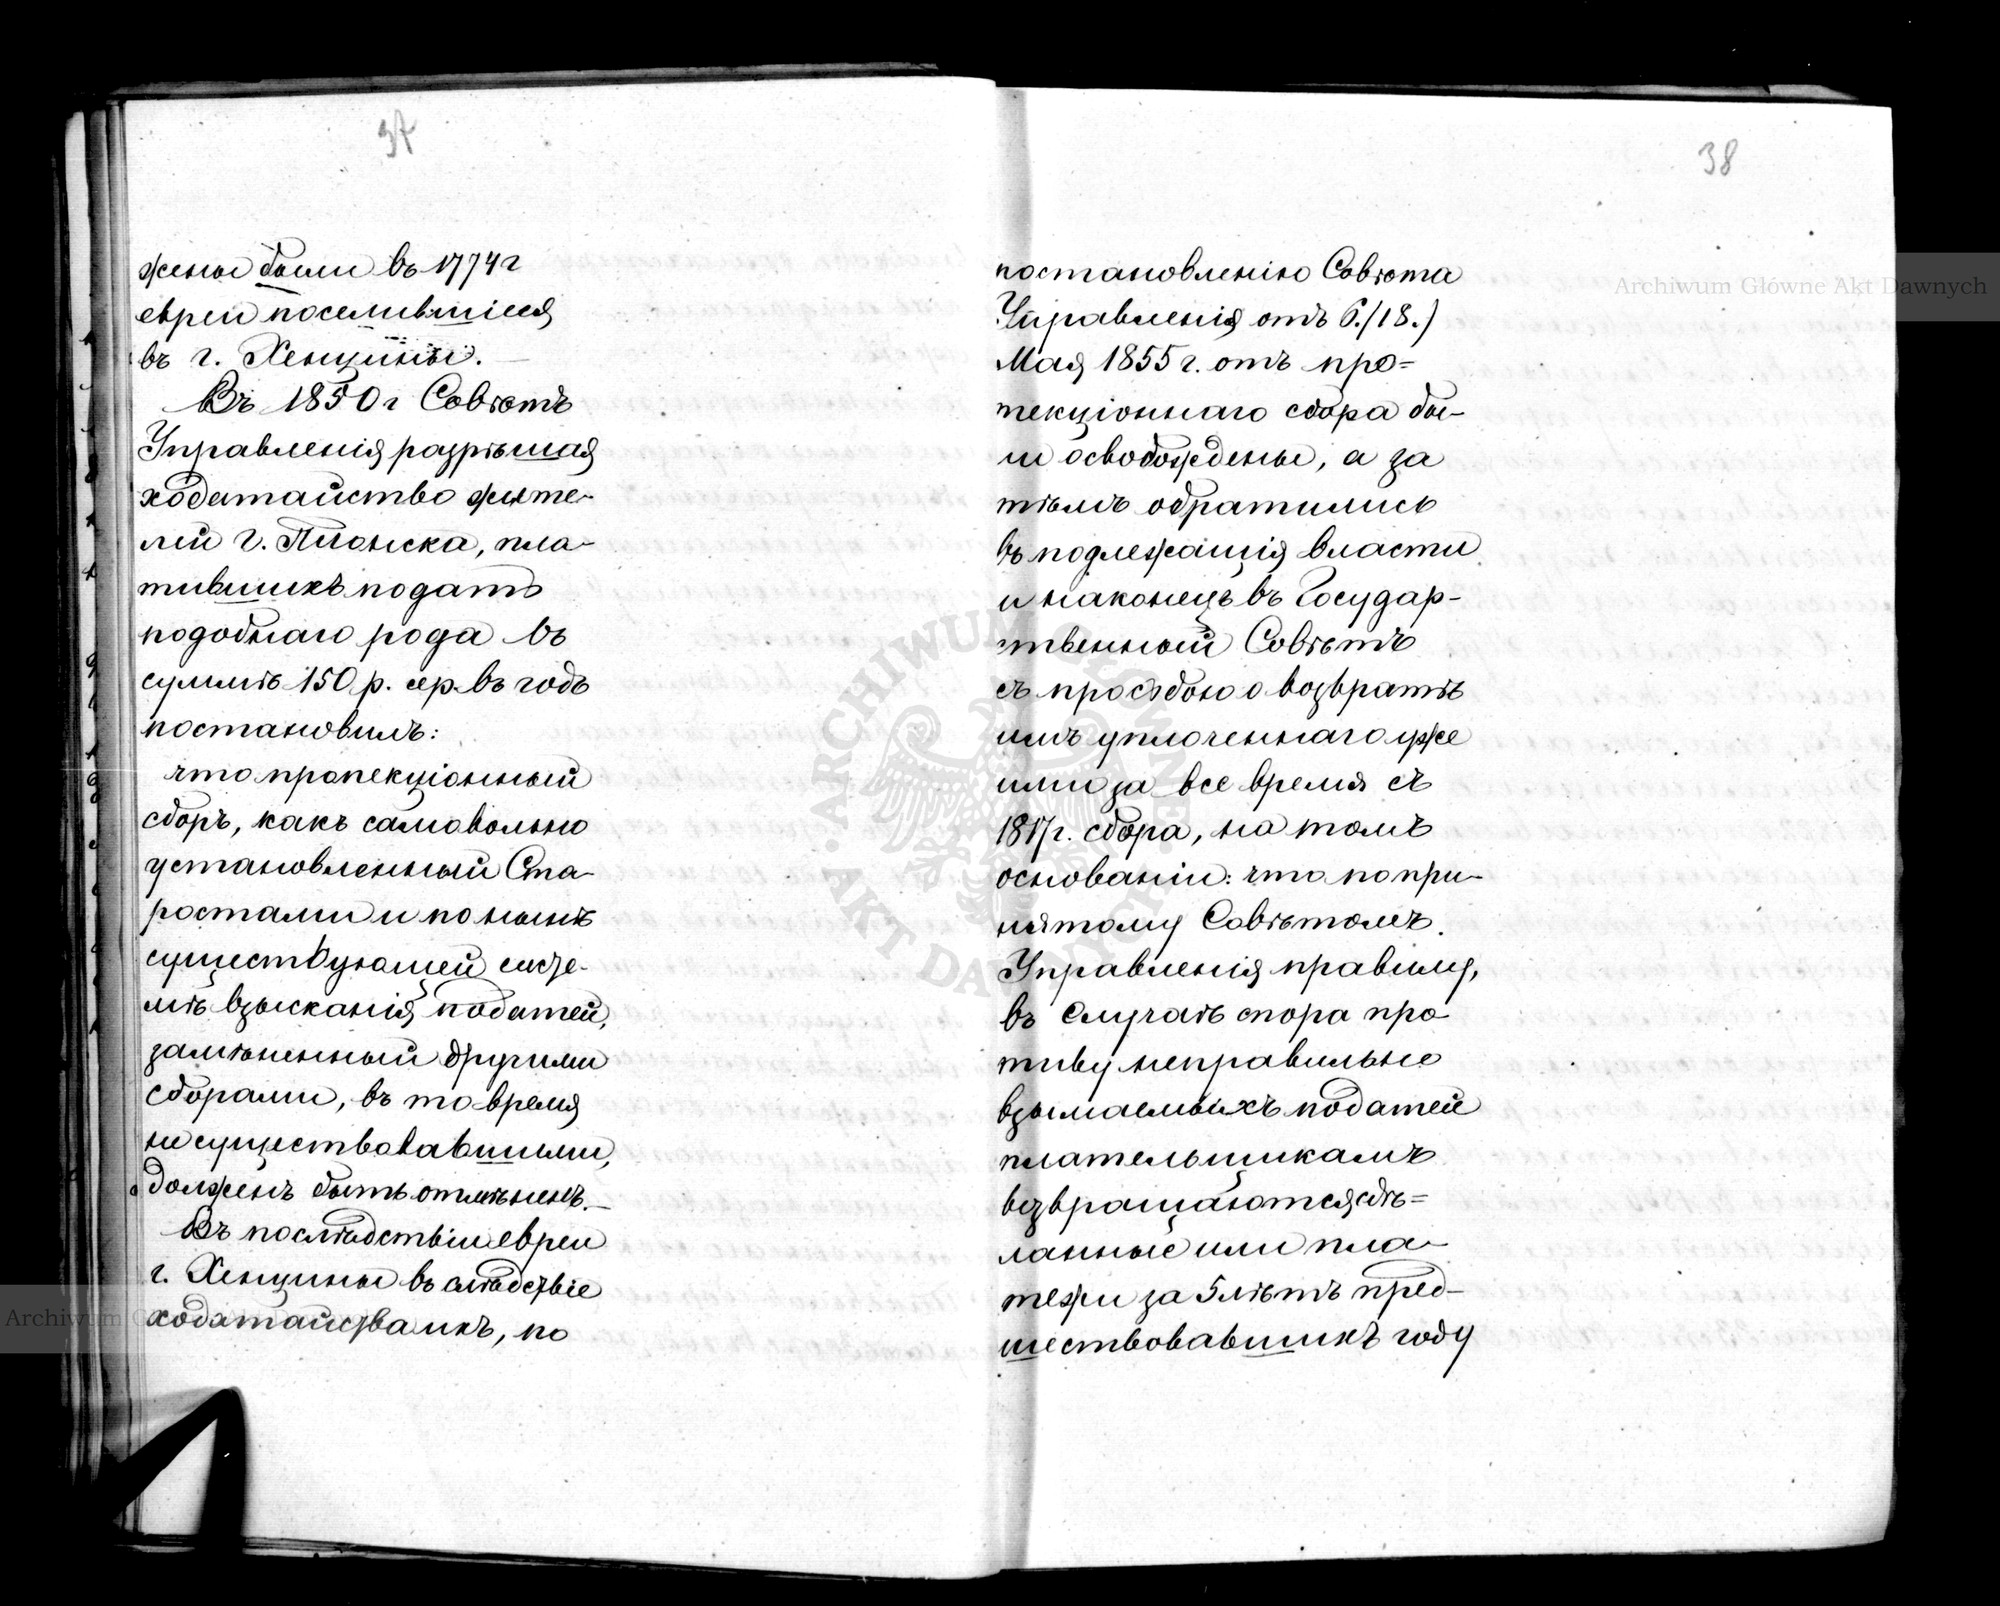 37
жены были въ 1774 г
евреи поселившіеся
въ г. Хенцины.
Въ 1850 г Совѣтъ
Управленія разрѣшая
ходатайство жите-
лей г. Плонска, пла-
тившихъ подать
подобнаго рода въ
суммѣ 150 р. сер. въ годъ
постановилъ:
что протекціонный
сборъ, какъ самовольно
установленный Ста-
ростами и по нынѣ
существующей систе-
мѣ взысканія податей,
замѣненный другими
сборами, въ то время
не существовавшими,
долженъ быть отмѣненъ.
Въ послѣдствіи евреи
г. Хенцины въ слѣдствіе
ходатайства ихъ, по
38
постановленію Совѣта
Управленія отъ 6./18.)
Мая 1855 г. отъ про=
текціоннаго сбора бы-
ли освобождены, а за
тѣмъ обратились
въ подлежащія власти
и наконецъ въ Государ-
ственный Совѣтъ
съ просьбою о возвратѣ
имъ уплоченнаго уже
ими за все время съ
1817 г. сбора, на томъ
основаніи: что по при-
нятому Совѣтомъ
Управленія правилу,
въ случаѣ спора про
тиву неправильно
взымаемыхъ податей
плательщикамъ
возвращаются сдѣ=
ланные ими пла-
тежи за 5 лѣтъ пред-
шествовавшихъ году
Archiwum Główne Akt Dawnych